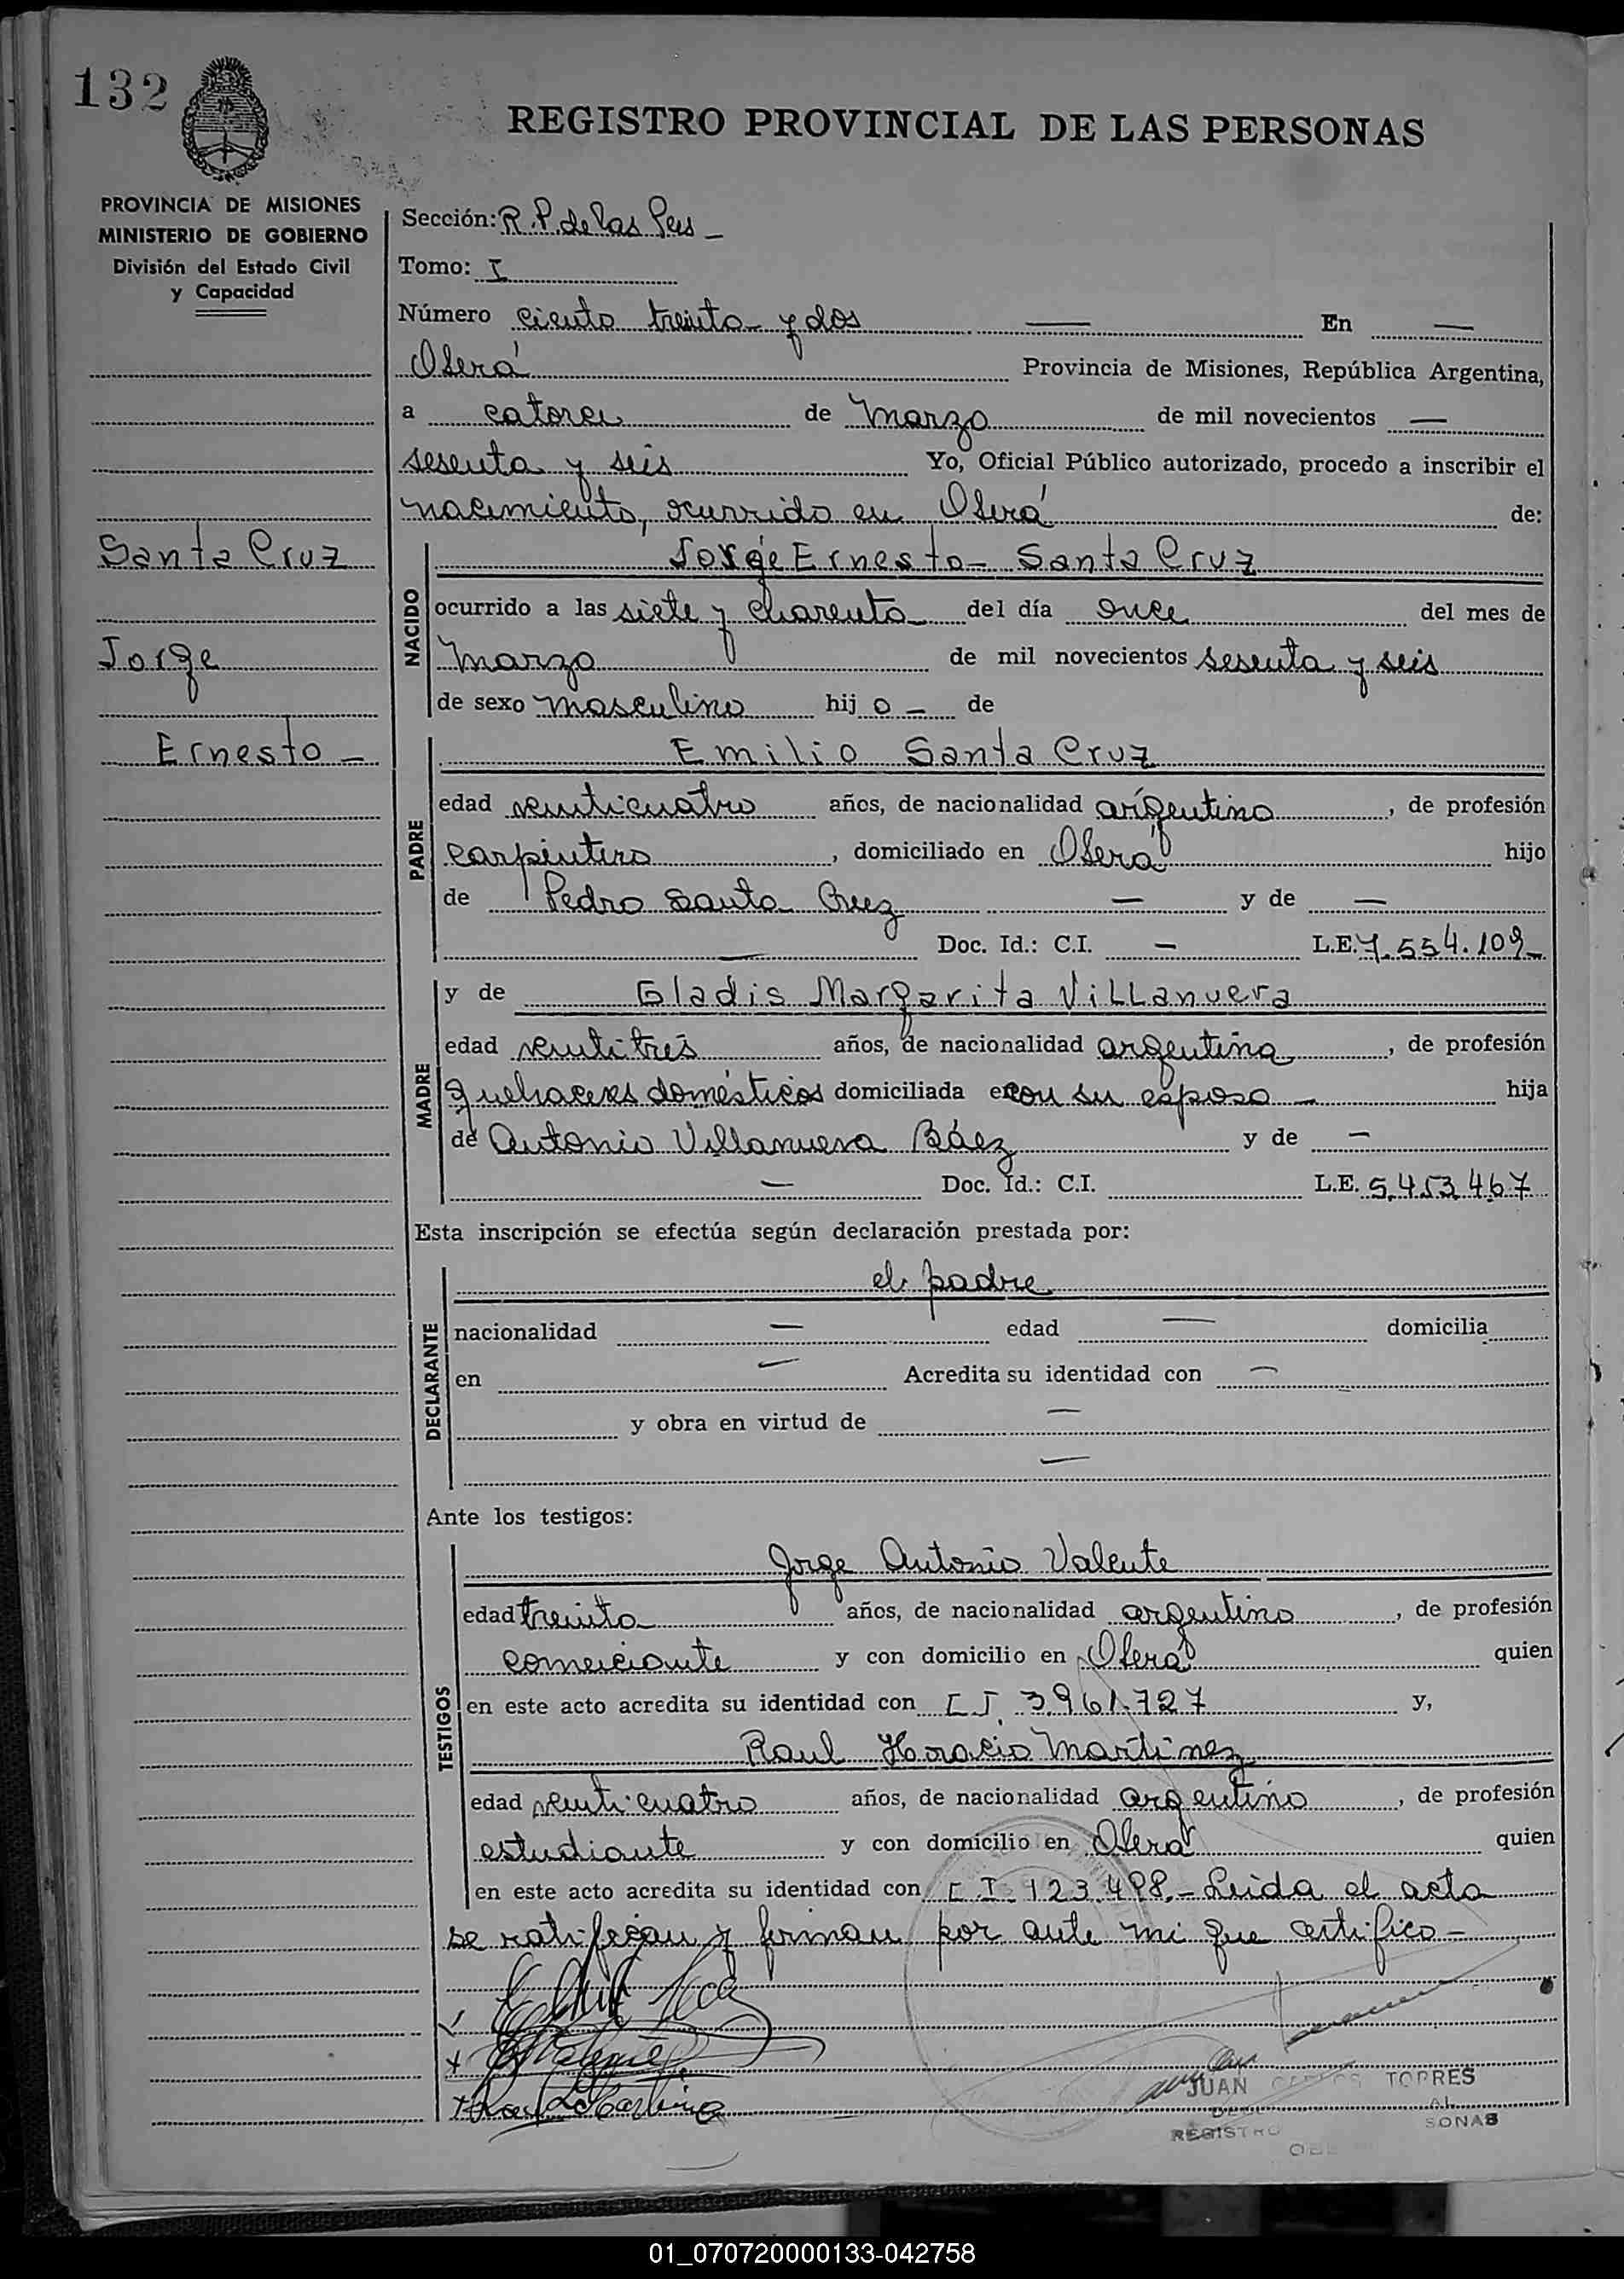 132
REGISTRO PROVINCIAL DE LAS PERSONAS
PROVINCIA DE MISIONES
MINISTERIO DE GOBIERNO
División del Estado Civil
y Capacidad
Santa Cruz
Jorge
Ernesto -
Sección: R.P. de las Pers -
Tomo: I
Número ciento treinta y dos — En —
Oberá Provincia de Misiones, República Argentina,
a catorce de Marzo de mil novecientos —
sesenta y seis Yo, Oficial Público autorizado, procedo a inscribir el
nacimiento, ocurrido en Oberá de:
NACIDO
Jorge Ernesto - Santa Cruz
ocurrido a las siete y cuarenta del día once del mes de
Marzo de mil novecientos sesenta y seis
de sexo masculino hij o - de
PADRE
Emilio Santa Cruz
edad venticuatro años, de nacionalidad argentino, de profesión
carpintero, domiciliado en Oberá hijo
de Pedro Santa Cruz — y de —
— Doc. Id.: C.I. — L.E. 7.554.109-
MADRE
y de Gladis Margarita Villanueva
edad ventitrés años, de nacionalidad argentina, de profesión
quehaceres domésticos domiciliada e con su esposo - hija
de Antonio Villanueva Báez y de —
— Doc. Id.: C.I. L.E. 5.453.467
Esta inscripción se efectúa según declaración prestada por:
DECLARANTE
el padre
nacionalidad — edad — domicilia
en — Acredita su identidad con —
y obra en virtud de —
—
Ante los testigos:
TESTIGOS
Jorge Antonio Valente
edad treinta años, de nacionalidad argentino, de profesión
comerciante y con domicilio en Oberá quien
en este acto acredita su identidad con C I. 3.961.727 y,
Raul Horacio Martinez
edad venticuatro años, de nacionalidad argentino, de profesión
estudiante y con domicilio en Oberá quien
en este acto acredita su identidad con C.I. 123.498.- Leida el acta
se ratifican y firman por ante mi que certifico -
JUAN CARLOS TORRES
REGISTRO
01_070720000133-042758